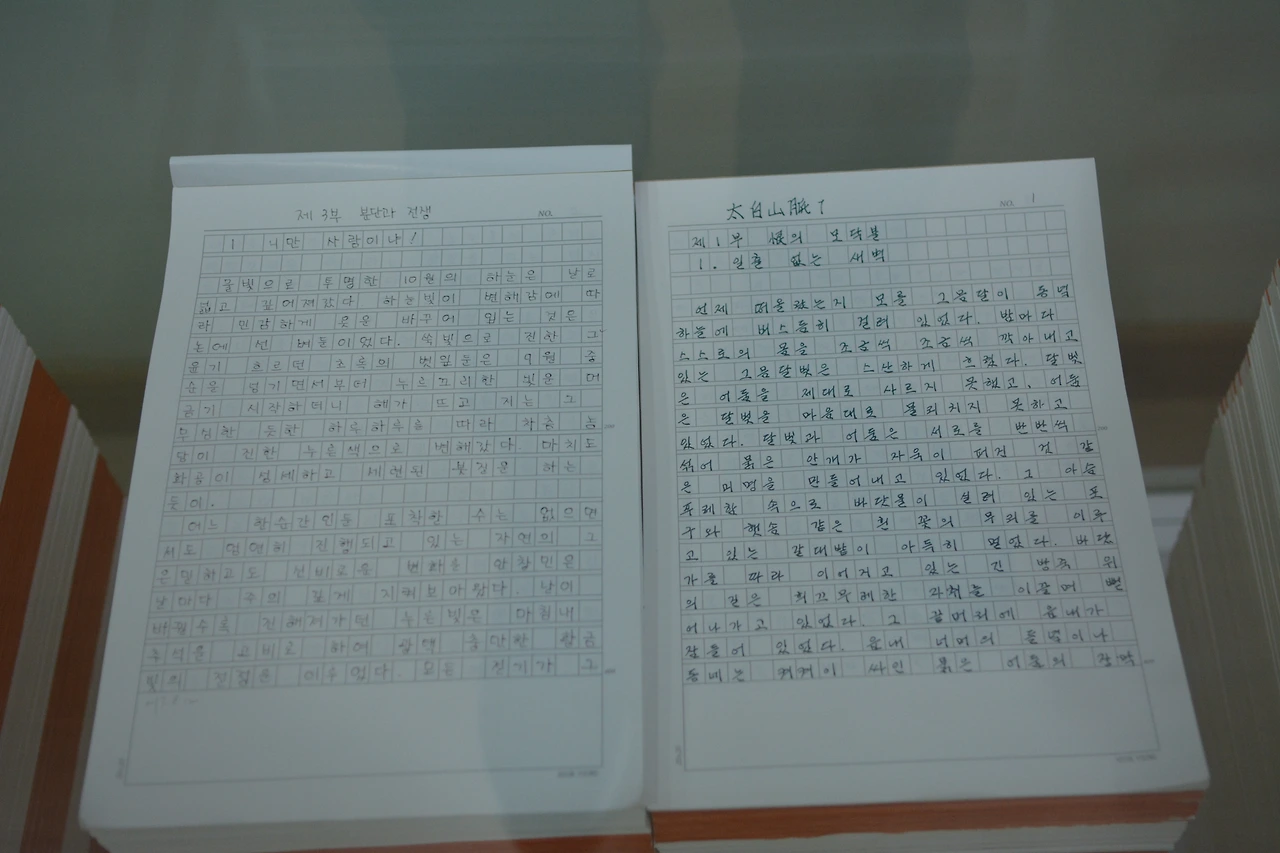 제 3부 분단과 전쟁
NO.
1 니만 사람이냐!
물빛으로 투명한 10월의 하늘은 날로
넓고 깊어져갔다. 하늘빛이 변해감에 따
라 민감하게 옷을 바꾸어 입는 것은
논에 선 벼들이었다. 쑥빛으로 진한 그
윤기 흐르던 초록의 볏잎들은 9월 중
순을 넘기면서부터 누르끄리한 빛을 머
금기 시작하더니 해가 뜨고 지는 그
무심한 듯한 하루하루를 따라 차츰 눈
달이 진한 누런색으로 변해갔다. 마치도
화공이 섬세하고 세련된 붓질을 하는
듯이.
어느 한순간인들 포착할 수는 없으면
서도 엄연히 진행되고 있는 자연의 그
은밀하고도 신비로운 변화를 안창민은
날마다 주의 깊게 지켜보아왔다. 날이
바뀔수록 진해져가던 누른빛은 마침내
추석을 고비로 하여 광택 충만한 황금
빛의 절정을 이루었다. 모든 진기가 그
太白山脈 1
NO. 1
제1부 恨의 모닥불
1. 일출 없는 새벽
언제 떠올랐는지 모를 그믐달이 동녘
하늘에 비스듬히 걸려 있었다. 밤마다
스스로의 몸을 조금씩 조금씩 깎아내고
있는 그믐달빛은 스산하게 흐렸다. 달빛
은 어둠을 제대로 사르지 못했고, 어둠
은 달빛을 마음대로 물리치지 못하고
있었다. 달빛과 어둠은 서로를 반반씩
섞어 묽은 안개가 자욱이 퍼진 것 같
은 미명을 만들어내고 있었다. 그 아슴
푸레함 속으로 바닷물이 실려 있는 포
구와 햇솜 같은 흰 꽃의 무리를 이루
고 있는 갈대밭이 아득히 멀었다. 바닷
가를 따라 이어지고 있는 긴 방죽 위
의 길은 희끄무레한 자취를 이끌며 뻗
어나가고 있었다. 그 끝머리에 읍내가
잠들어 있었다. 읍내 너머의 들녘이나
동네는 켜켜이 싸인 묽은 어둠의 장막